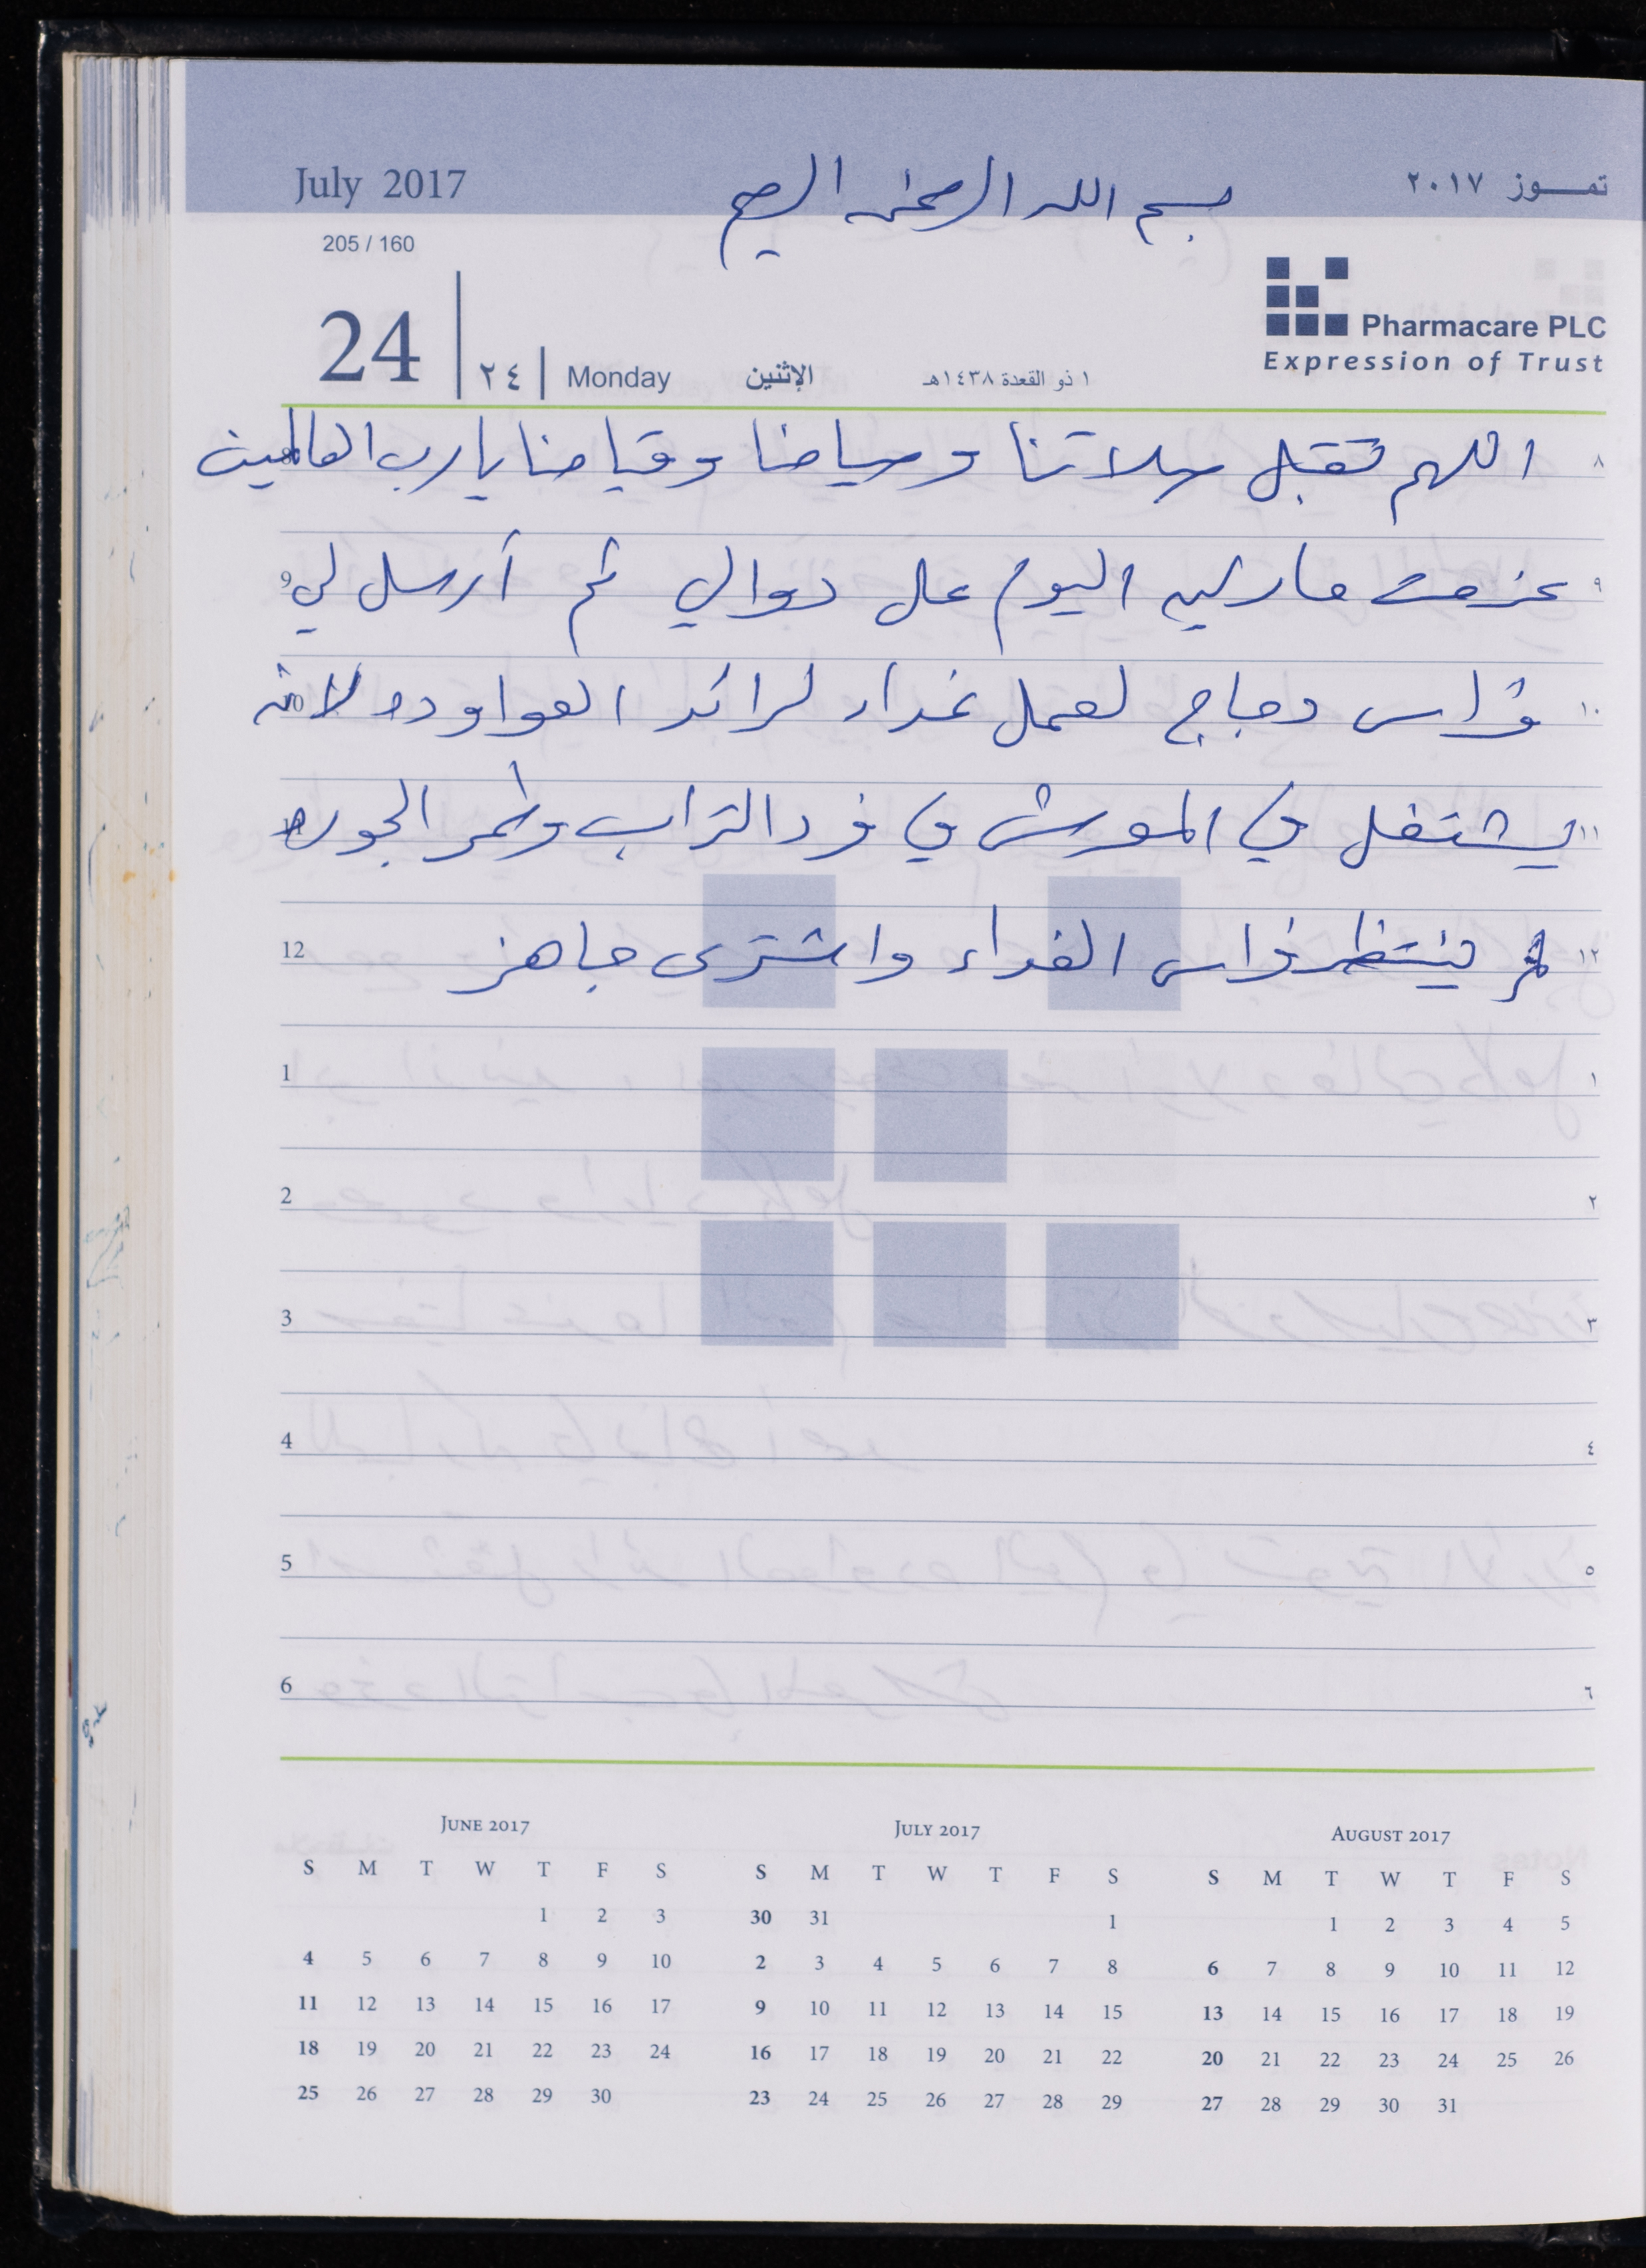 July 2017
بسم الله الرحمن الرحيم
تمــوز ٢٠١٧
205 / 160
24
٢٤
Monday
الإثنين
١ ذو القعدة ١٤٣٨هـ
Pharmacare PLC
Expression of Trust
اللهم تقبل صلاتنا وصيامنا وقيامنا يا رب العالمين
٨
عزمت مارلين اليوم على دوالي ثم أرسل لي
9 ٩
فراس دجاج لعمل غداء لرائد العواوده لانه
١٠
يشتغل في المورش في فرد التراب وطمر الجوره
١١
لم ينتظر فراس الغداء واشترى جاهز
12 ١٢
1 ١
2 ٢
3 ٣
4 ٤
5 ٥
6 ٦
JUNE 2017
S M T W T F S
1 2 3
4 5 6 7 8 9 10
11 12 13 14 15 16 17
18 19 20 21 22 23 24
25 26 27 28 29 30
JULY 2017
S M T W T F S
30 31 1
2 3 4 5 6 7 8
9 10 11 12 13 14 15
16 17 18 19 20 21 22
23 24 25 26 27 28 29
AUGUST 2017
S M T W T F S
1 2 3 4 5
6 7 8 9 10 11 12
13 14 15 16 17 18 19
20 21 22 23 24 25 26
27 28 29 30 31